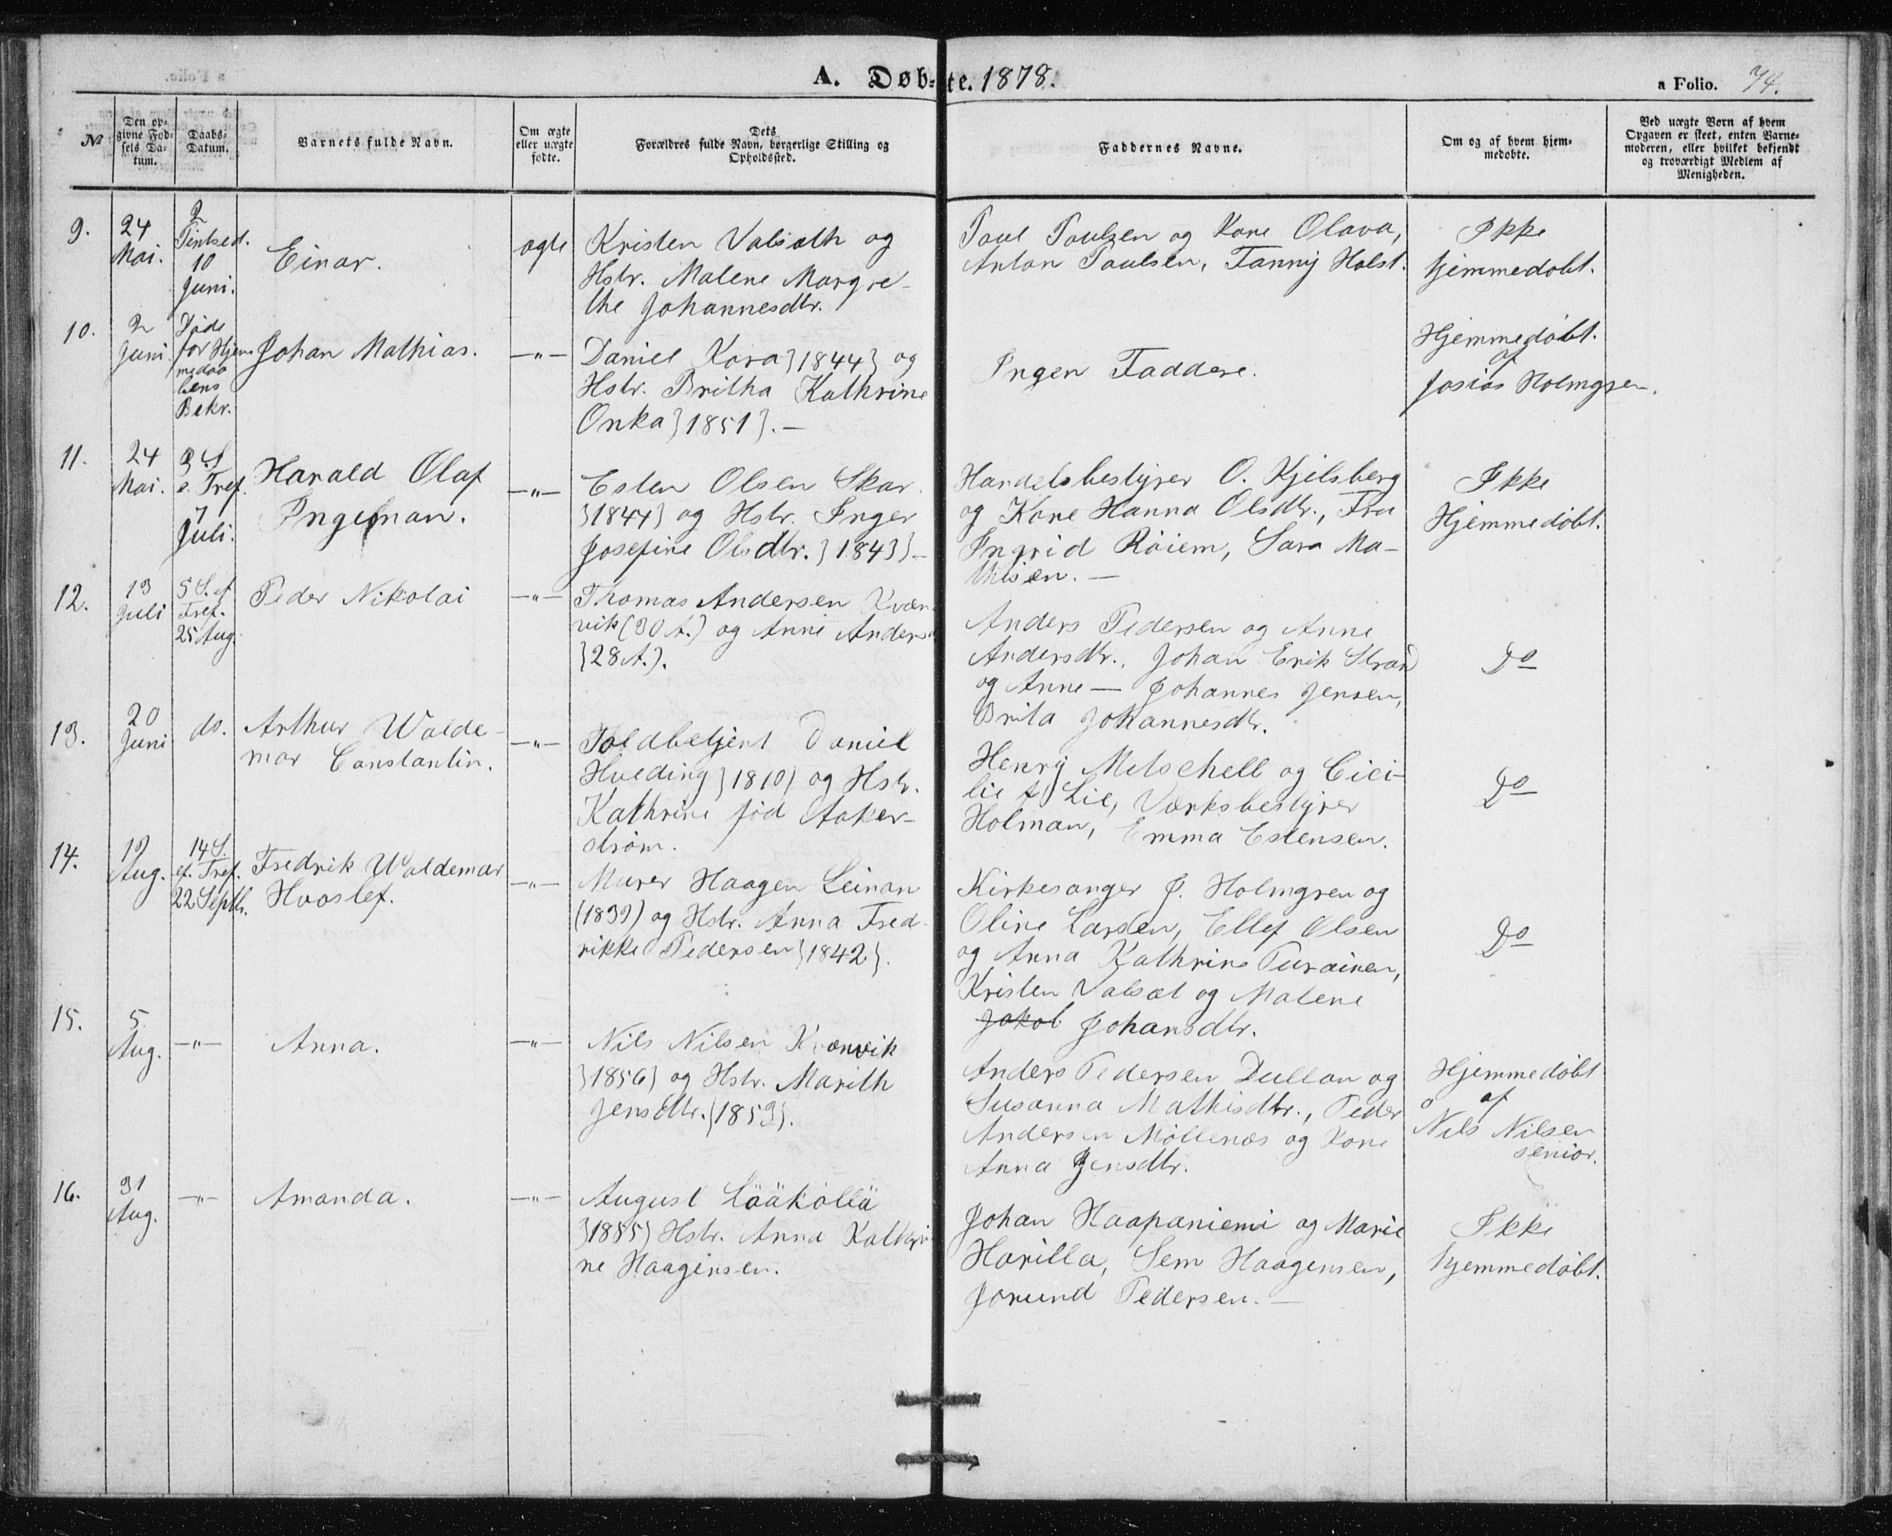 A. Døb-te. 1878.
a Folio. 74.
№
Den op-
givne Fød-
sels Da-
tum.
Daabs-
Datum.
Barnets fulde Navn.
Om ægte
eller uægte
fødte.
Dets
Forældres fulde Navn, borgerlige Stilling og
Opholdssted.
Faddernes Navne.
Om og af hvem hjem-
medøbte.
Ved uægte Born af hvem
Opgaven er skeet, enten Barne-
moderen, eller hvilket bekjendt
og troværdigt Medlem af
Menigheden.
9.
24
Mai.
2
Pintsed.
10
Juni.
Einar.
ægte
Kristen Valsøth og
Hstr. Malene Margre-
the Johannesdtr.
Paul Paulsen og Kone Olava,
Anton Paulsen, Fanny Holst.
Ikke
hjemmedøbt.
10.
2
Juni.
Døde
før Hjem-
medaa
bens
Bekr.
Johan Mathias.
—"—
Daniel Kora }1844} og
Hstr. Britha Kathrine
Onka }1851}.—
Ingen Faddere.
Hjemmedøbt.
af
Josias Holmgren.
11.
24
Mai.
3 S
e. Tref.
7
Juli.
Harald Olaf
Ingeman.
—"—
Esten Olsen Skar.
}1844} og Hstr. Inger
Josefine Olsdtr. }1843}.—
Handelsbestyrer O. Kjelsberg
og Kone Hanna Olsdtr., Fru
Ingrid Røiem, Sara Ma-
thisen.—
Ikke
Hjemmedøbt.
12.
13
Juli
5 S. ef
Tref.
25 Aug.
Peder Nikolai
—"—
Thomas Andersen Kvæn
vik (30 A.) og Anne Anders
}28 A.).
Anders Pedersen og Anne
Andersdtr., Johan Erik Strand
og Anne — Johannes Jensen,
Brita Johannesdtr.
Do
13.
20
Juni
do.
Arthur Walde-
mar Constantin.
—"—
Toldbetjent Daniel
Hveding }1810} og Hstr.
Kathrine fød Aaker-
strøm.
Henry Mitschell og Cici-
lie A Lie, Værksbestyrer
Holman, Emma Estensen.
Do
14.
19
Aug.
14 S.
ef. Tref.
22 Septb.
Fredrik Waldemar
Hvoslef.
—"—
Murer Haagen Leinan
(1839) og Hstr. Anna Fred-
rikke Pedersen }1842}.
Kirkesanger J. Holmgren og
Oline Larsen, Ellef Olsen
og Anna Kathrine Turainen,
Kristen Valsøt og Malene
Jakob Johansdtr.
Do
15.
5
Aug.
—"—
Anna.
—"—
Nils Nilsen Kvænvik
}1856} og Hstr. Marith
Jensdtr. }1859}.
Anders Pedersen Dullan og
Susanna Mathisdtr., Peder
Andersen Møllenæs og Kone
Anna Jensdtr.
Hjemmedøbt
af
Nils Nilsen
senior.
16.
31
Aug.
—"—
Amanda.
—"—
August Lääköllä
}1855} Hstr. Anna Kathri
ne Haagensen.
Johan Haapaniemi og Marie
Harilla, Sem Haagensen,
Jorund Pedersen.—
Ikke
hjemmedøbt.